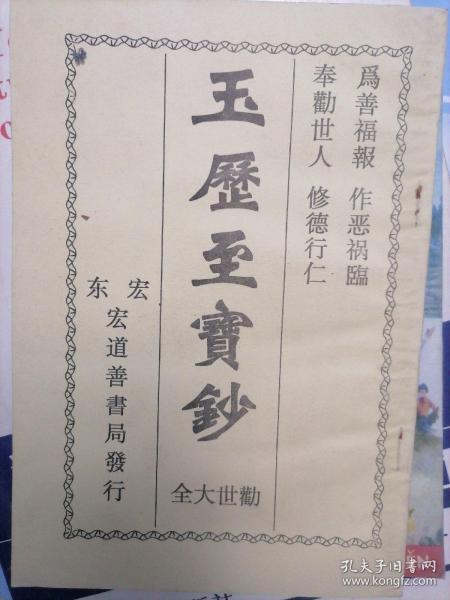 爲善福報 作恶祸臨
奉勸世人 修德行仁
玉歷至寶鈔
勸世大全
宏东
宏道善書局發行
孔夫子旧书网
www.kongfz.com